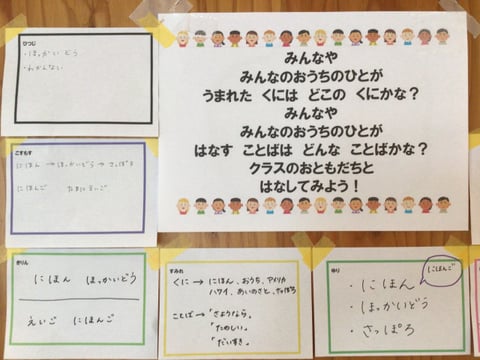 みんなや
みんなのおうちのひとが
うまれた くには どこの くにかな？
みんなや
みんなのおうちのひとが
はなす ことばは どんな ことばかな？
クラスのおともだちと
はなしてみよう！
ひつじ
・ほっかいどう
・わかんない
こすもす
にほん → ほっかいどう → さっぽろ
にほんご たまにえいご
きりん
にほん ほっかいどう
えいご にほんご
すみれ
くに → にほん、おうち、アメリカ
ハワイ、あいのさと、さっぽろ
ことば → 「さようなら」
「たのしい」
「だいすき」
ゆり
にほんご
・にほん
・ほっかいどう
・さっぽろ